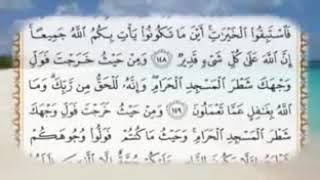 فَاسْتَبِقُوا الْخَيْرَٰتِ ۚ أَيْنَ مَا تَكُونُوا يَأْتِ بِكُمُ اللَّهُ جَمِيعًا
إِنَّ اللَّهَ عَلَىٰ كُلِّ شَيْءٍ قَدِيرٌ ١٤٨ وَمِنْ حَيْثُ خَرَجْتَ فَوَلِّ
وَجْهَكَ شَطْرَ الْمَسْجِدِ الْحَرَامِ ۖ وَإِنَّهُ لَلْحَقُّ مِن رَّبِّكَ ۗ وَمَا
اللَّهُ بِغَٰفِلٍ عَمَّا تَعْمَلُونَ ١٤٩ وَمِنْ حَيْثُ خَرَجْتَ فَوَلِّ وَجْهَكَ
شَطْرَ الْمَسْجِدِ الْحَرَامِ ۚ وَحَيْثُ مَا كُنتُمْ فَوَلُّوا وُجُوهَكُمْ